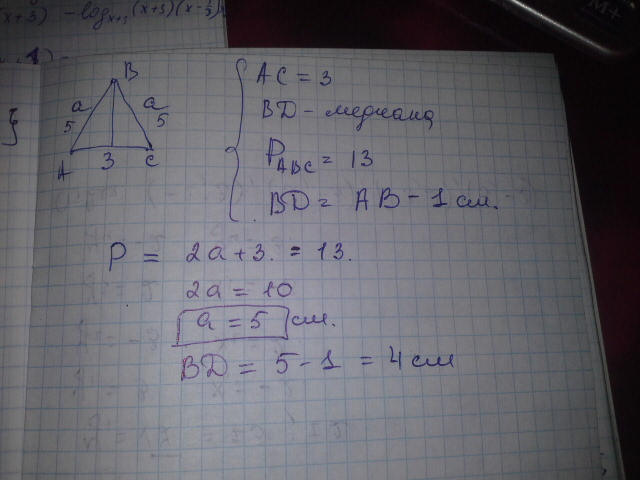 (x+3) - log x+3 (x+3)(x-
M+
B
a a
5 5
A 3 C
AC = 3
BD - медиана
P ABC = 13
BD = AB - 1 см.
P = 2a + 3. = 13.
2a = 10
a = 5 см.
BD = 5 - 1 = 4 см